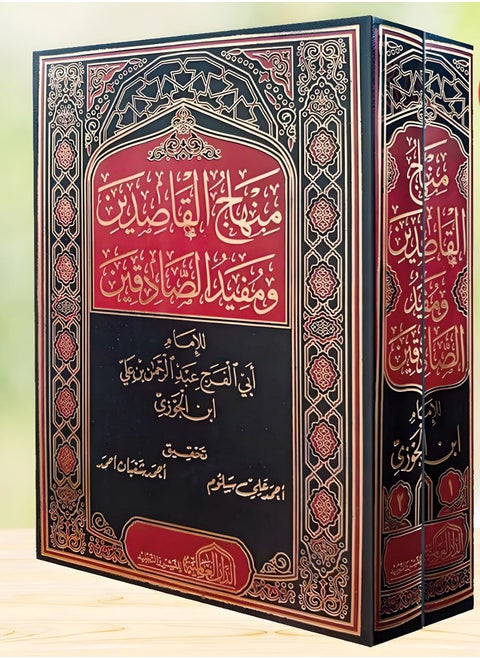 مِنْهَاجُ الْقَاصِدِينَ
وَمُفِيدُ الصَّادِقِينَ
للإمام
أبي الفرج عبد الرحمن بن علي
ابن الجوزي
تحقيق
أحمد علي سلوم
أحمد شعبان أحمد
منهاج
القاصدين
ومفيد
الصادقين
للإمام
ابن الجوزي
١
٢